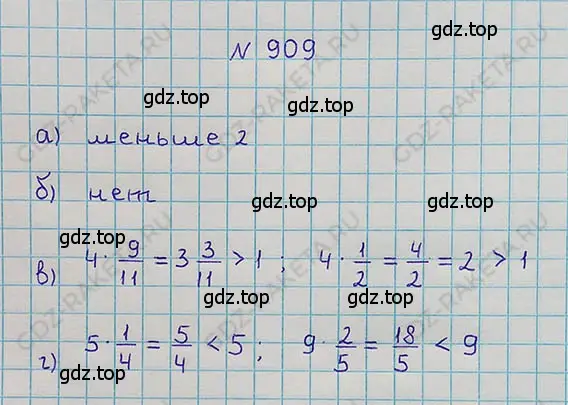 N 909
gdz.top
gdz.top
а) меньше 2
б) нет
gdz.top
gdz.top
в) 4 · 9/11 = 3 3/11 > 1 ; 4 · 1/2 = 4/2 = 2 > 1
gdz.top
gdz.top
г) 5 · 1/4 = 5/4 < 5 ; 9 · 2/5 = 18/5 < 9
gdz.top
gdz.top
GDZ-RAKETA.RU
GDZ-RAKETA.RU
GDZ-RAKETA.RU
GDZ-RAKETA.RU